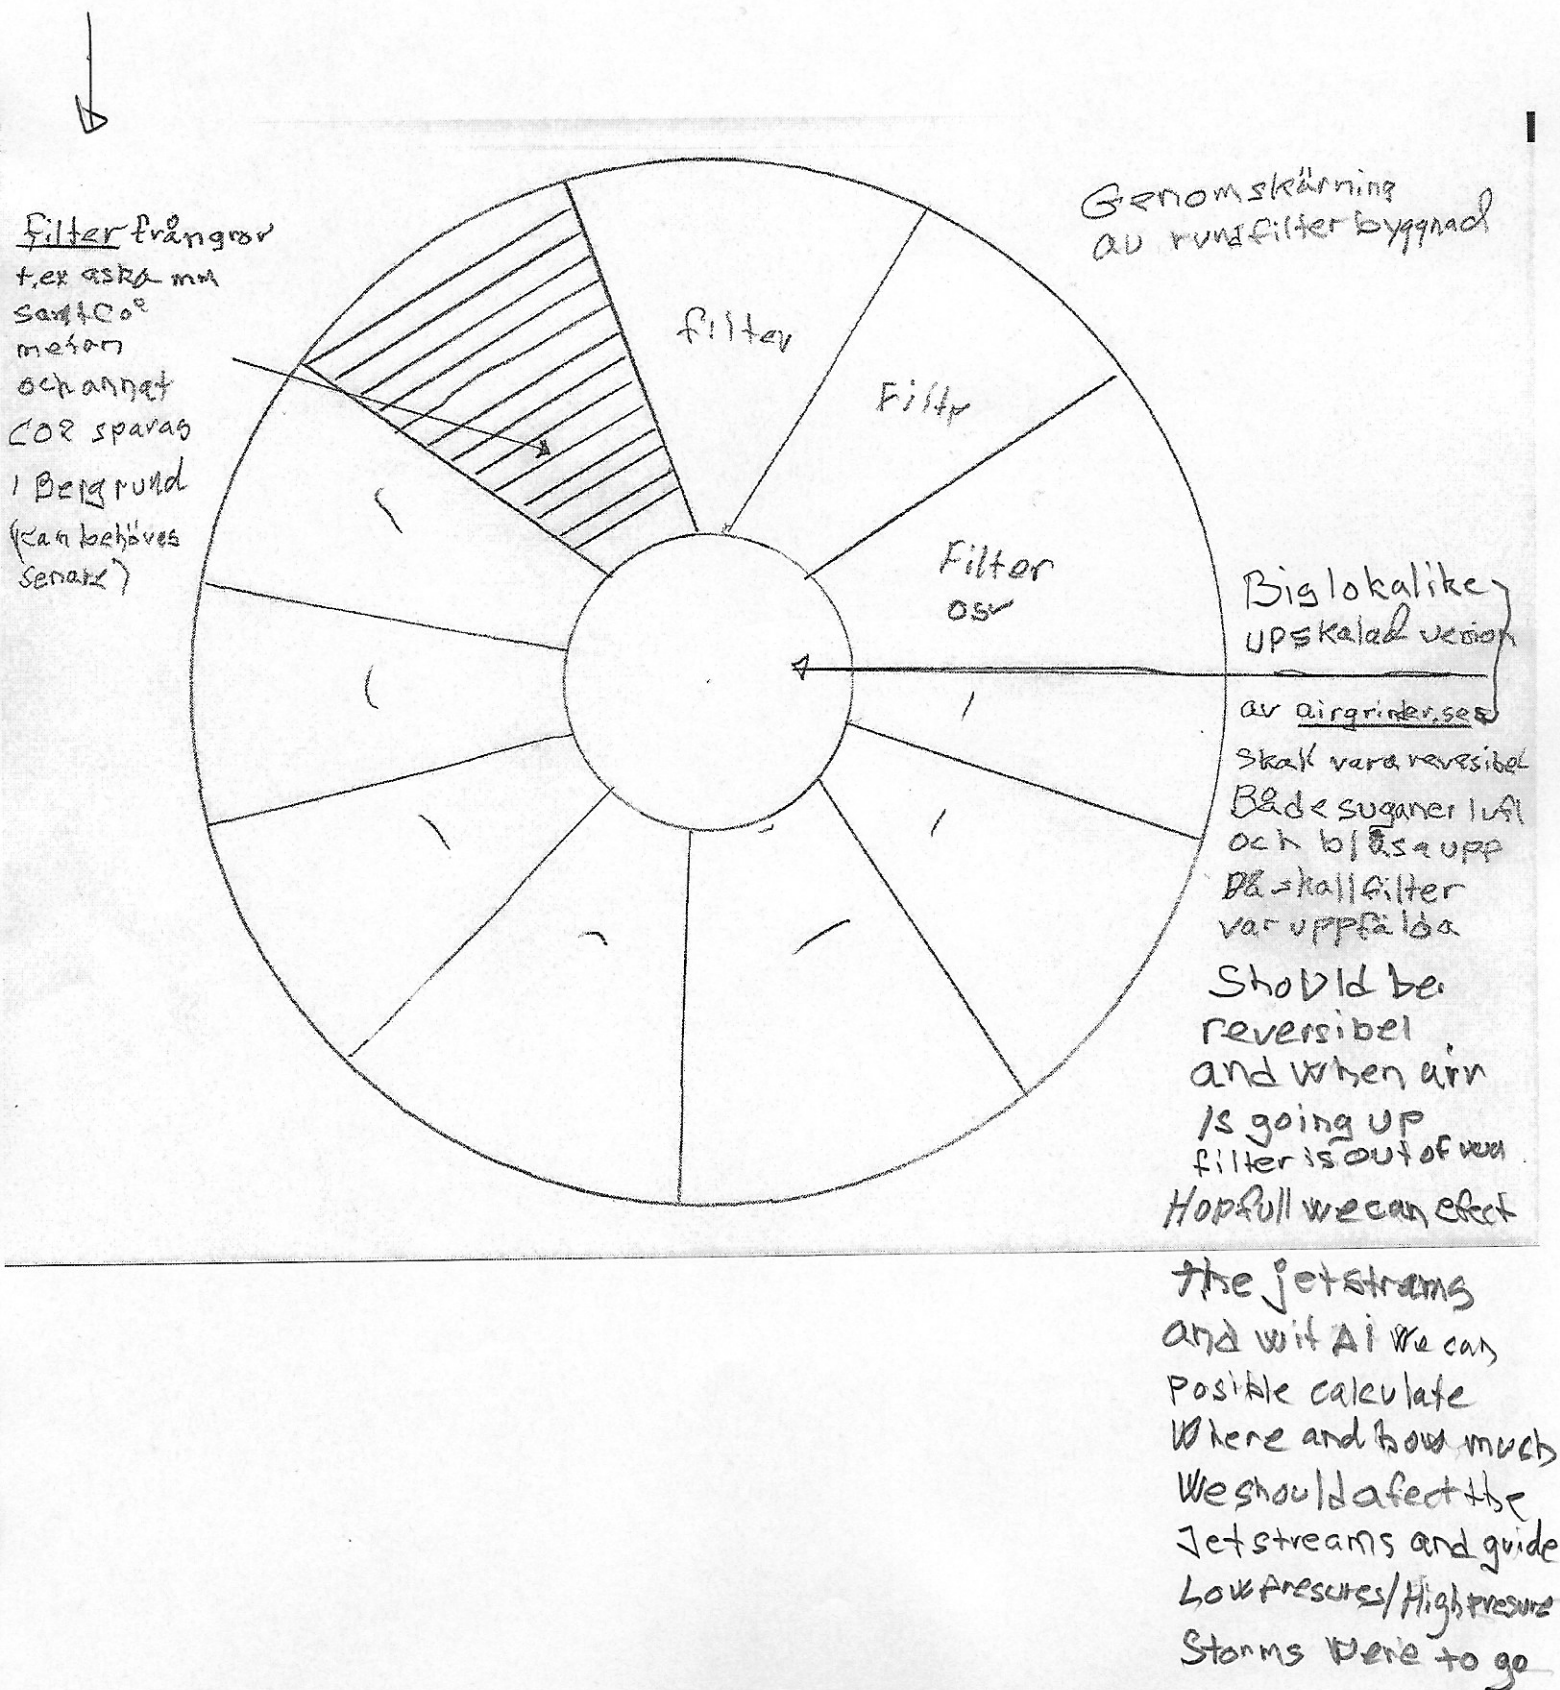 Genomskärning
av rundfilterbyggnad
filter från grov
t.ex aska mm
samt Co2
metan
och annat
CO2 sparas
i Bergrund
(kan behöves
senare)
filter
Filtr
Filter
osv
Big lokalike
upskalad vesion
av airgrinder.se
skall vara revesibel
Både suga ner luft
och blåsa upp
Då skall filter
var uppfälda
Should be
reversibel
and when air
is going up
filter is out of
Hopfull we can efect
the jetstrams
and wit Ai we can
posible calculate
Where and how much
We should afect the
Jetstreams and guide
Low Presures/High presure
Storms were to go